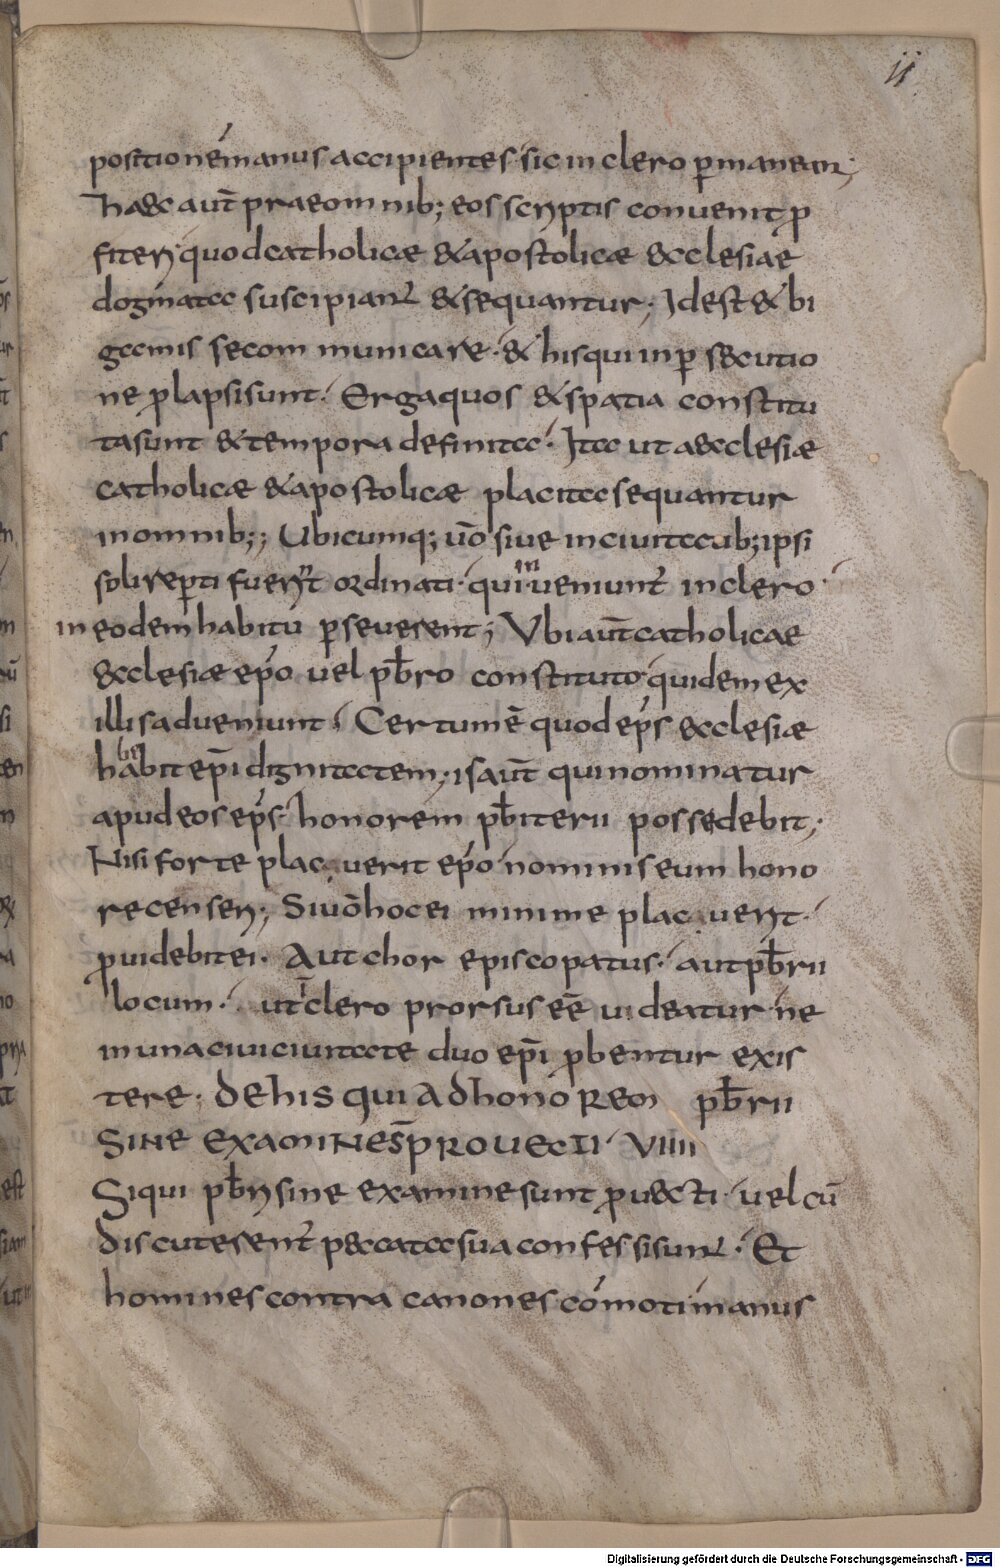 11
positionē manus accipientes sic in clero ꝑmaneant;
haec aut̄ prae omnib; eos scriptis convenit ꝓ
fiteri quod catholicae & apostolicae ecclesiae
dogmata suscipiant & sequantur; Id est & bi
gamis se communicare · & his qui in ꝑsecutio
ne ꝓlapsi sunt · Erga quos & spatia constitu
ta sunt & tempora definita · Ita ut aecclesiae
catholicae & apostolicae placita sequantur
in omnib;; Ubicumq; ūo sive in civitatib; ipsi
soli reꝑti fuerint ordinati · qui inveniunt in clero
in eodem habitu ꝑseverent; Ubi aut̄ catholicae
ecclesiae ep̄o vel p̄bro constituto quidem ex
illis adveniunt · Certum ē quod ep̄s ecclesiae
habebit ep̄i dignitatem; is aut̄ qui nominatur
apud eos ep̄s honorem p̄biterii possedebit;
Nisi forte placuerit ep̄o nominis eum hono
re censeri; Si ūo hoc ei minime placuerit ·
ꝓvidebit ei · Aut chor episcopatus · aut p̄brii
locum · ut ī clero prorsus eē videatur ne
in una civi civitate duo ep̄i ꝓbentur exis
tere · De his qui ad honorem p̄brii
sine examine s̄ provecti VIIII
Siqui p̄bri sine examine sunt ꝓvecti vel cū
discuterent peccata sua confessi sunt · Et
homines contra canones cōmoti manus
Digitalisierung gefördert durch die Deutsche Forschungsgemeinschaft - DFG